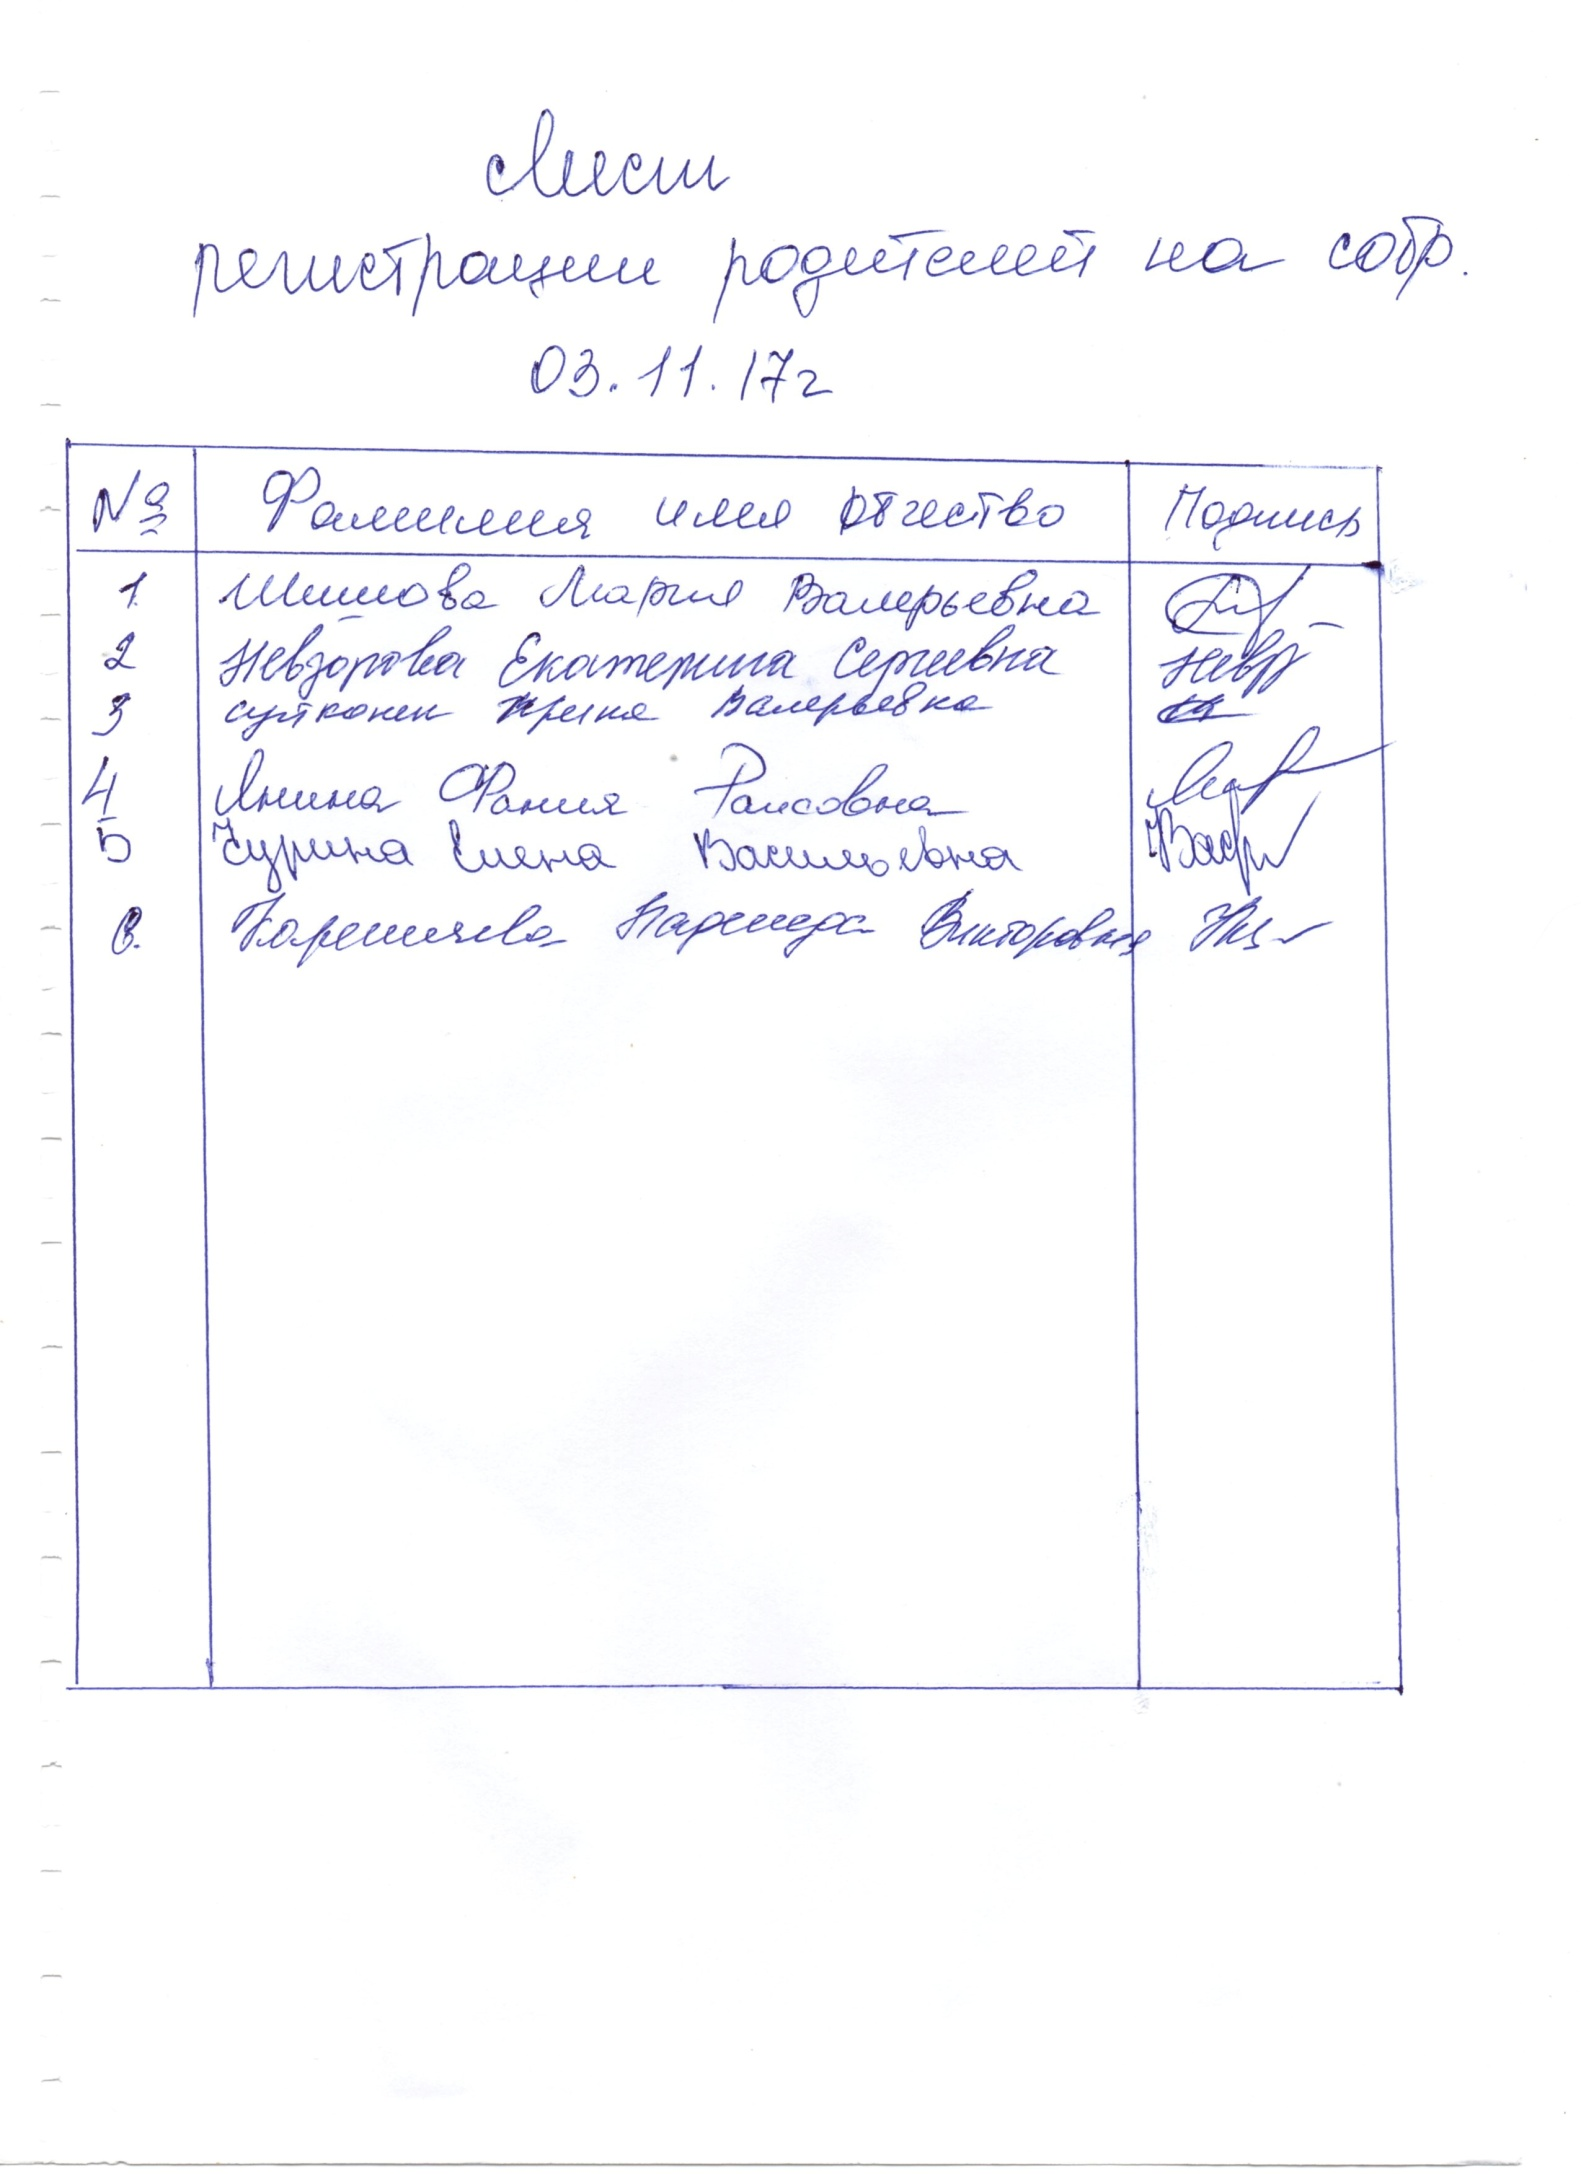 Лист
регистрации родителей на собр.
03.11.17г
№ Фамилия имя отчество Подпись
1. Шишова Мария Валерьевна
2 Невзорова Екатерина Сергеевна Невз
3 Ирина Валерьевна
4 Янина Фания Раисовна
5 Чурина Елена Васильевна
6. Надежда Викторовна